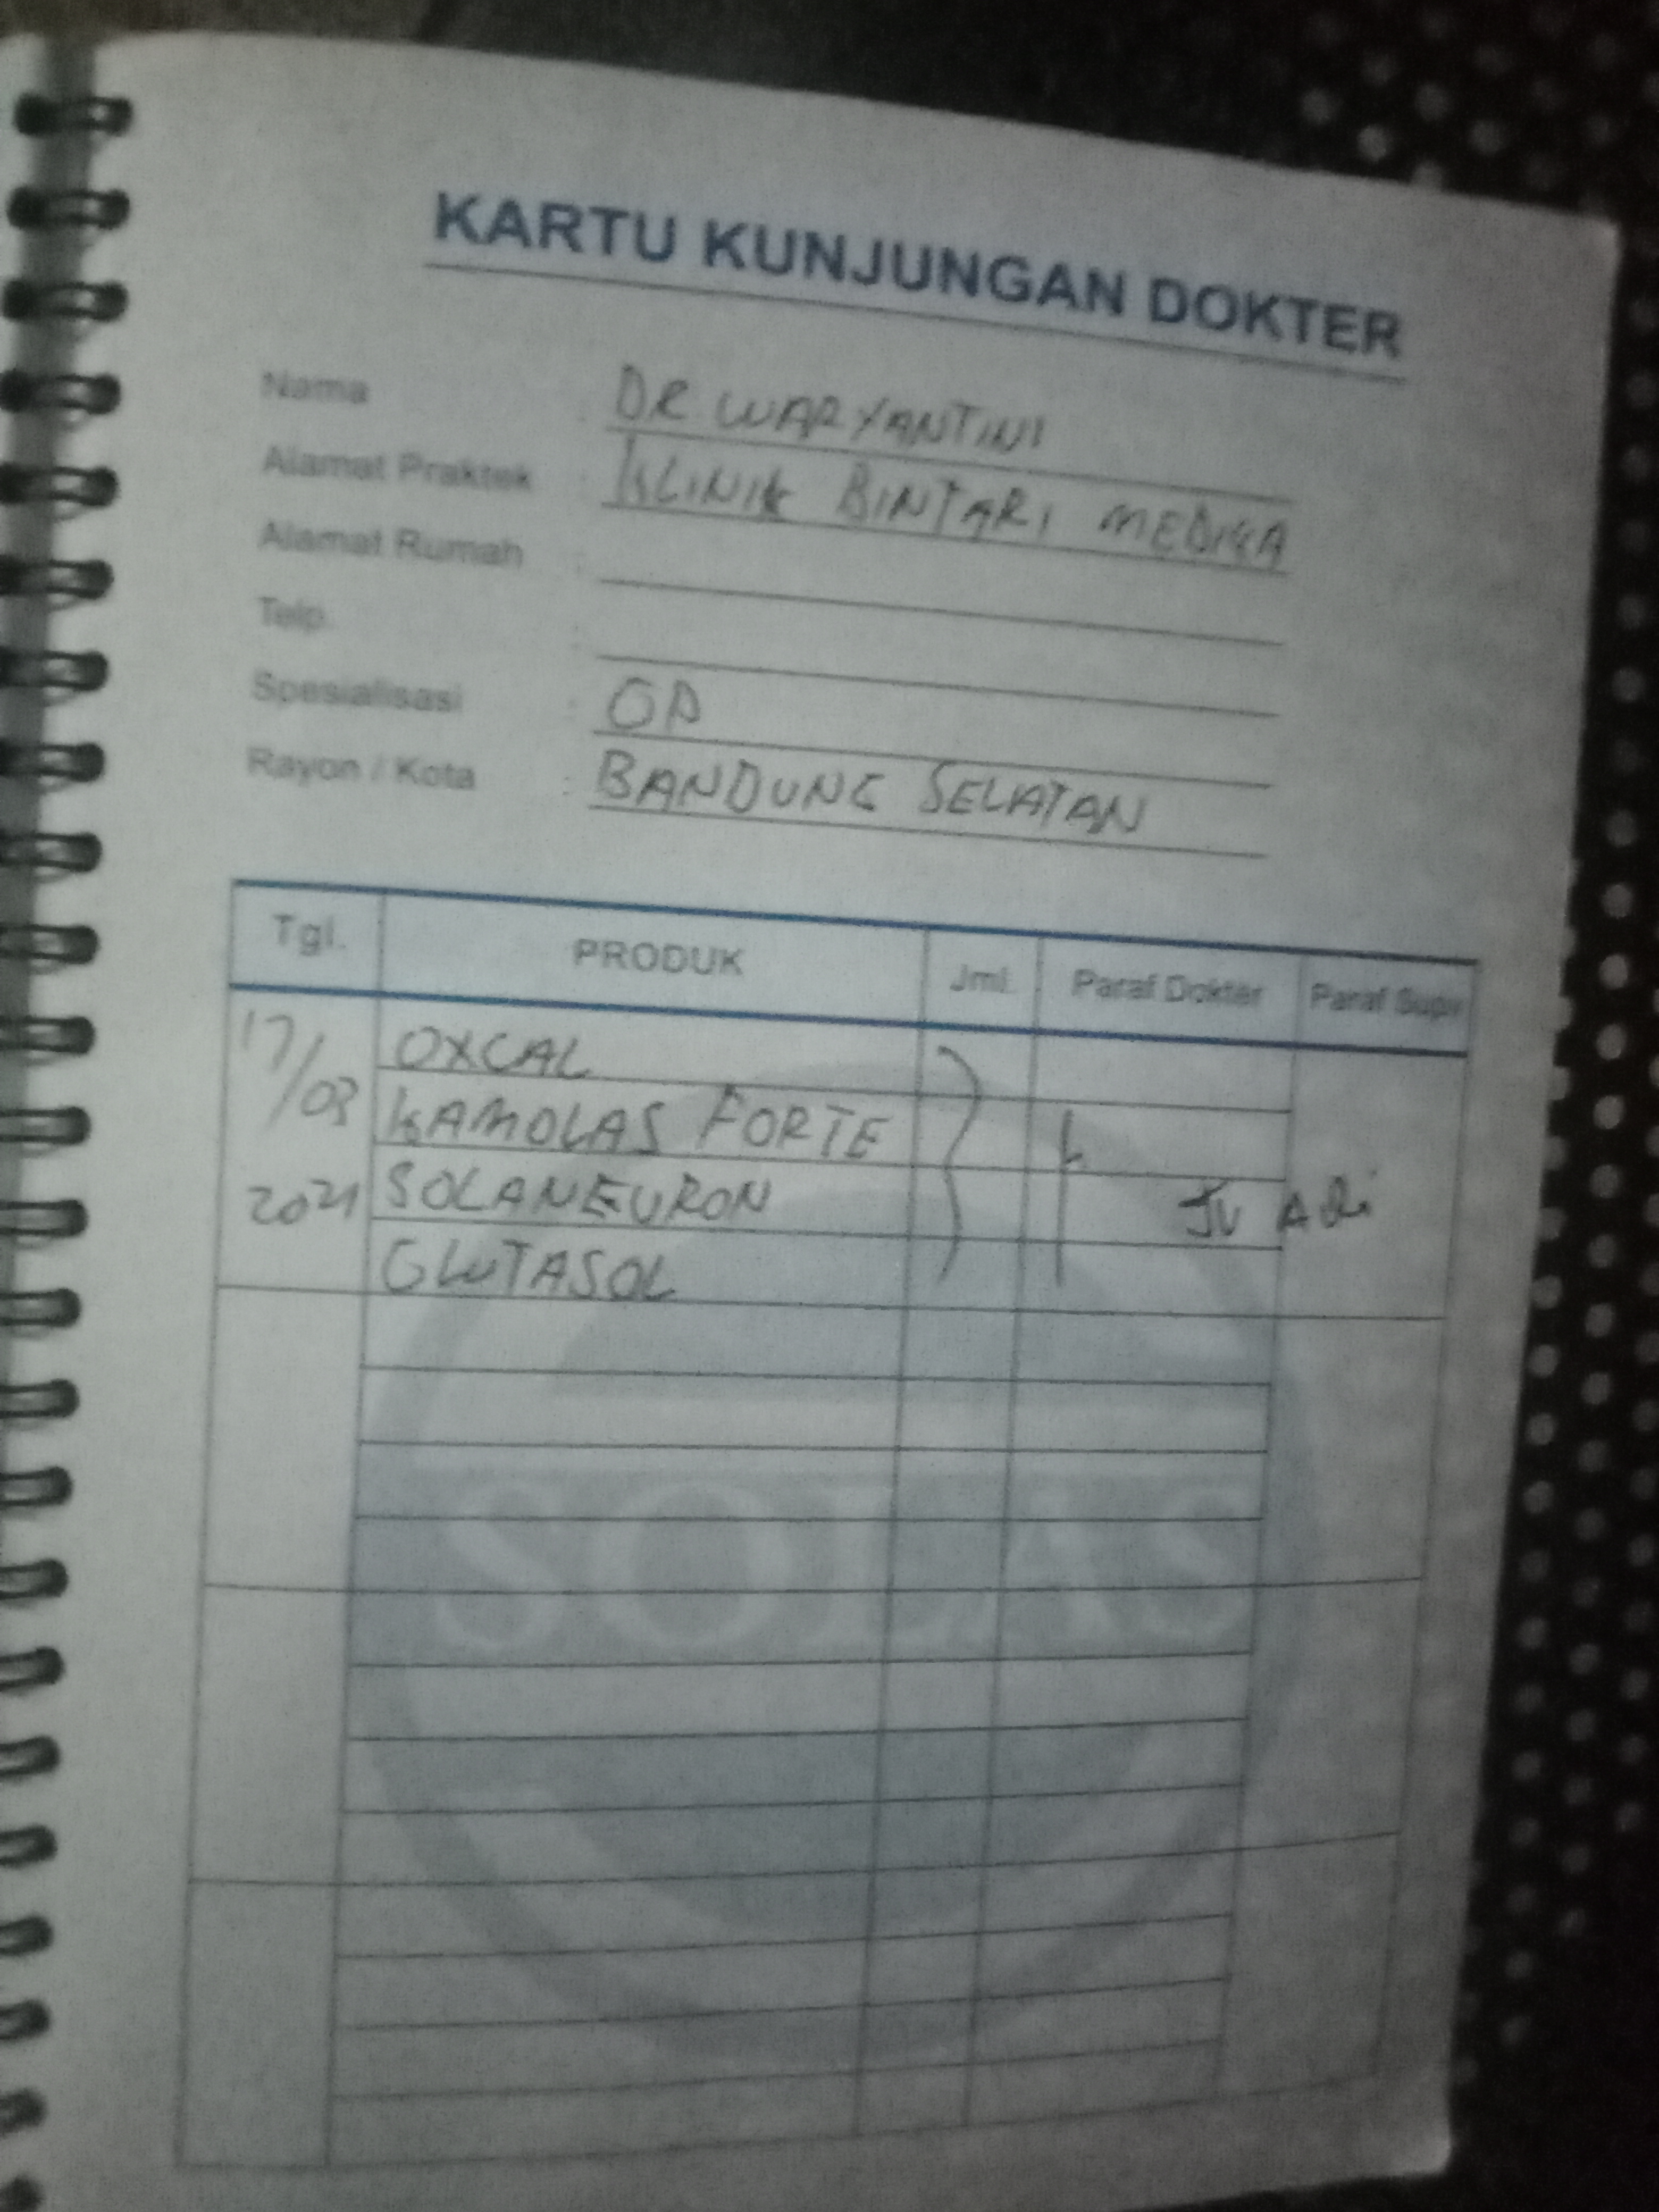 KARTU KUNJUNGAN DOKTER
Nama : DR WARYANTINI
Alamat Praktek : KLINIK BINTARI MEDIKA
Alamat Rumah :
Telp. :
Spesialisasi :
Rayon / Kota : BANDUNG SELATAN
Tgl. PRODUK Jml. Paraf Dokter Paraf Supv
17/03 2021
OXCAL
KAMOLAS FORTE
SOLANEURON
GLUTASOL
SOLAS